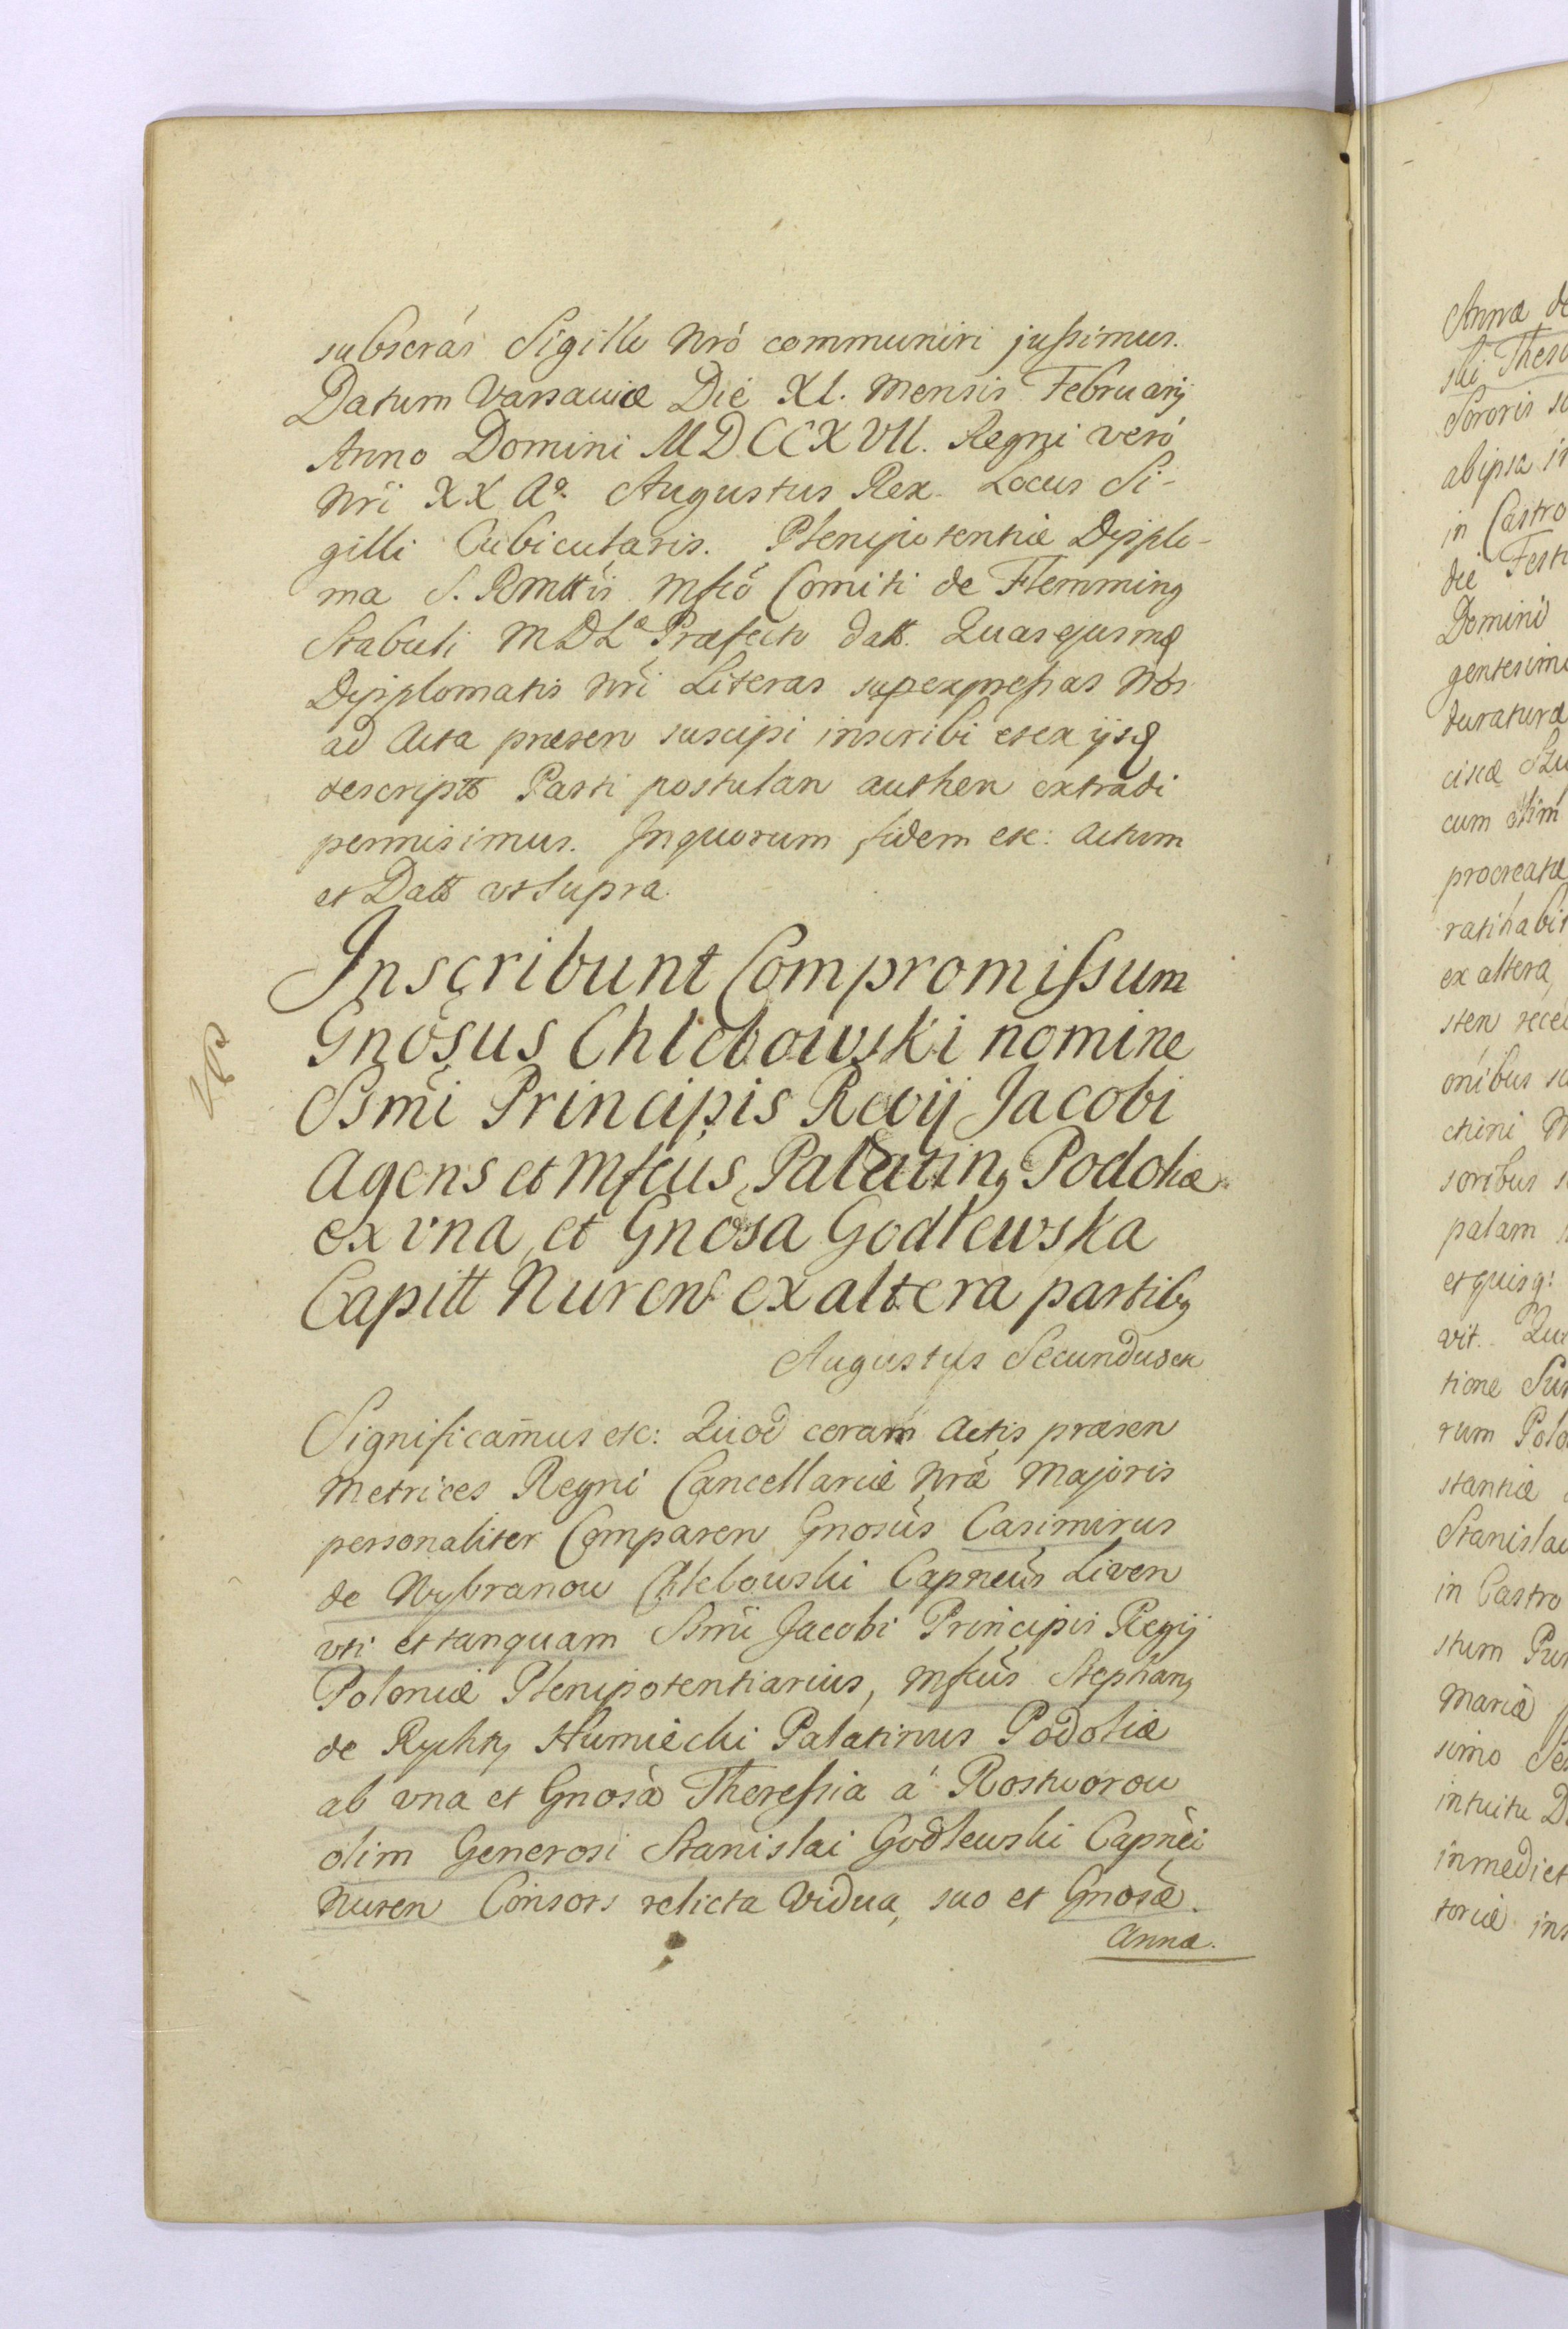 subscrás Sigillo Nró communiri jussimus.
Datum Varsaviæ Die XI. Mensis Februarij
Anno Domini MDCCXVII. Regni veró
Nrĩ XX Aº. Augustus Rex. Locus Si-
gilli Cubicularis. Plenipotentiæ Dyplo-
ma S. RMttis Mfcõ Comiti de Flemming
Stabuli MDLæ Præfecto datt. Quas ejusmõ
Dyplomatis Nrĩ Literas supexpressas Nos
ad Acta præsen suscipi inscribi et ex ijsq
descriptt Parti postulan authen extradi
permisimus. In quorum fidem etc: Actum
et Datt vt supra.
Inscribunt Compromissum
Gnõsus Chlebowski nomine
Ssmĩ Principis Regij Jacobi
Agens et Mfcus Palatinꝰ Podoliæ
ex vna et Gnõsa Godlewska
Capitt Nuren ex altera partibꝰ
Augustus Secundus etc
Significamus etc: Quod coram Actis præsen
Metrices Regni Cancellariæ Nræ Majoris
personaliter Comparen Gnosus Casimirus
de Wybranow Chlebowski Capneus Liven
vti et tanquam Ssmi Jacobi Principis Regij
Poloniæ Plenipotentiarius, Mfcus Stephanꝰ
de Rychty Humiecki Palatinus Podoliæ
ab vna et Gnosa Theressia á Rostworow
olim Generosi Stanislai Godlewski Capnei
Nuren Consors relicta Vidua, suo et Gnosæ
Annæ.
Annæ de
ski Thes
Sororis su
ab ipsa in
in Castro
die Festi
Domini
gentesimo
duraturæ
cisca
cum olim
procreatæ
ratihabit
ex altera,
sten recer
onibus su
ctini
soribus s
palam
et quisq:
vit. Qu
tione Sum
rum Polo
stantiæ
Stanislai
in Castro
stum Pur
Mariæ
simo Se
intuitu D
inmediet
toriæ ins